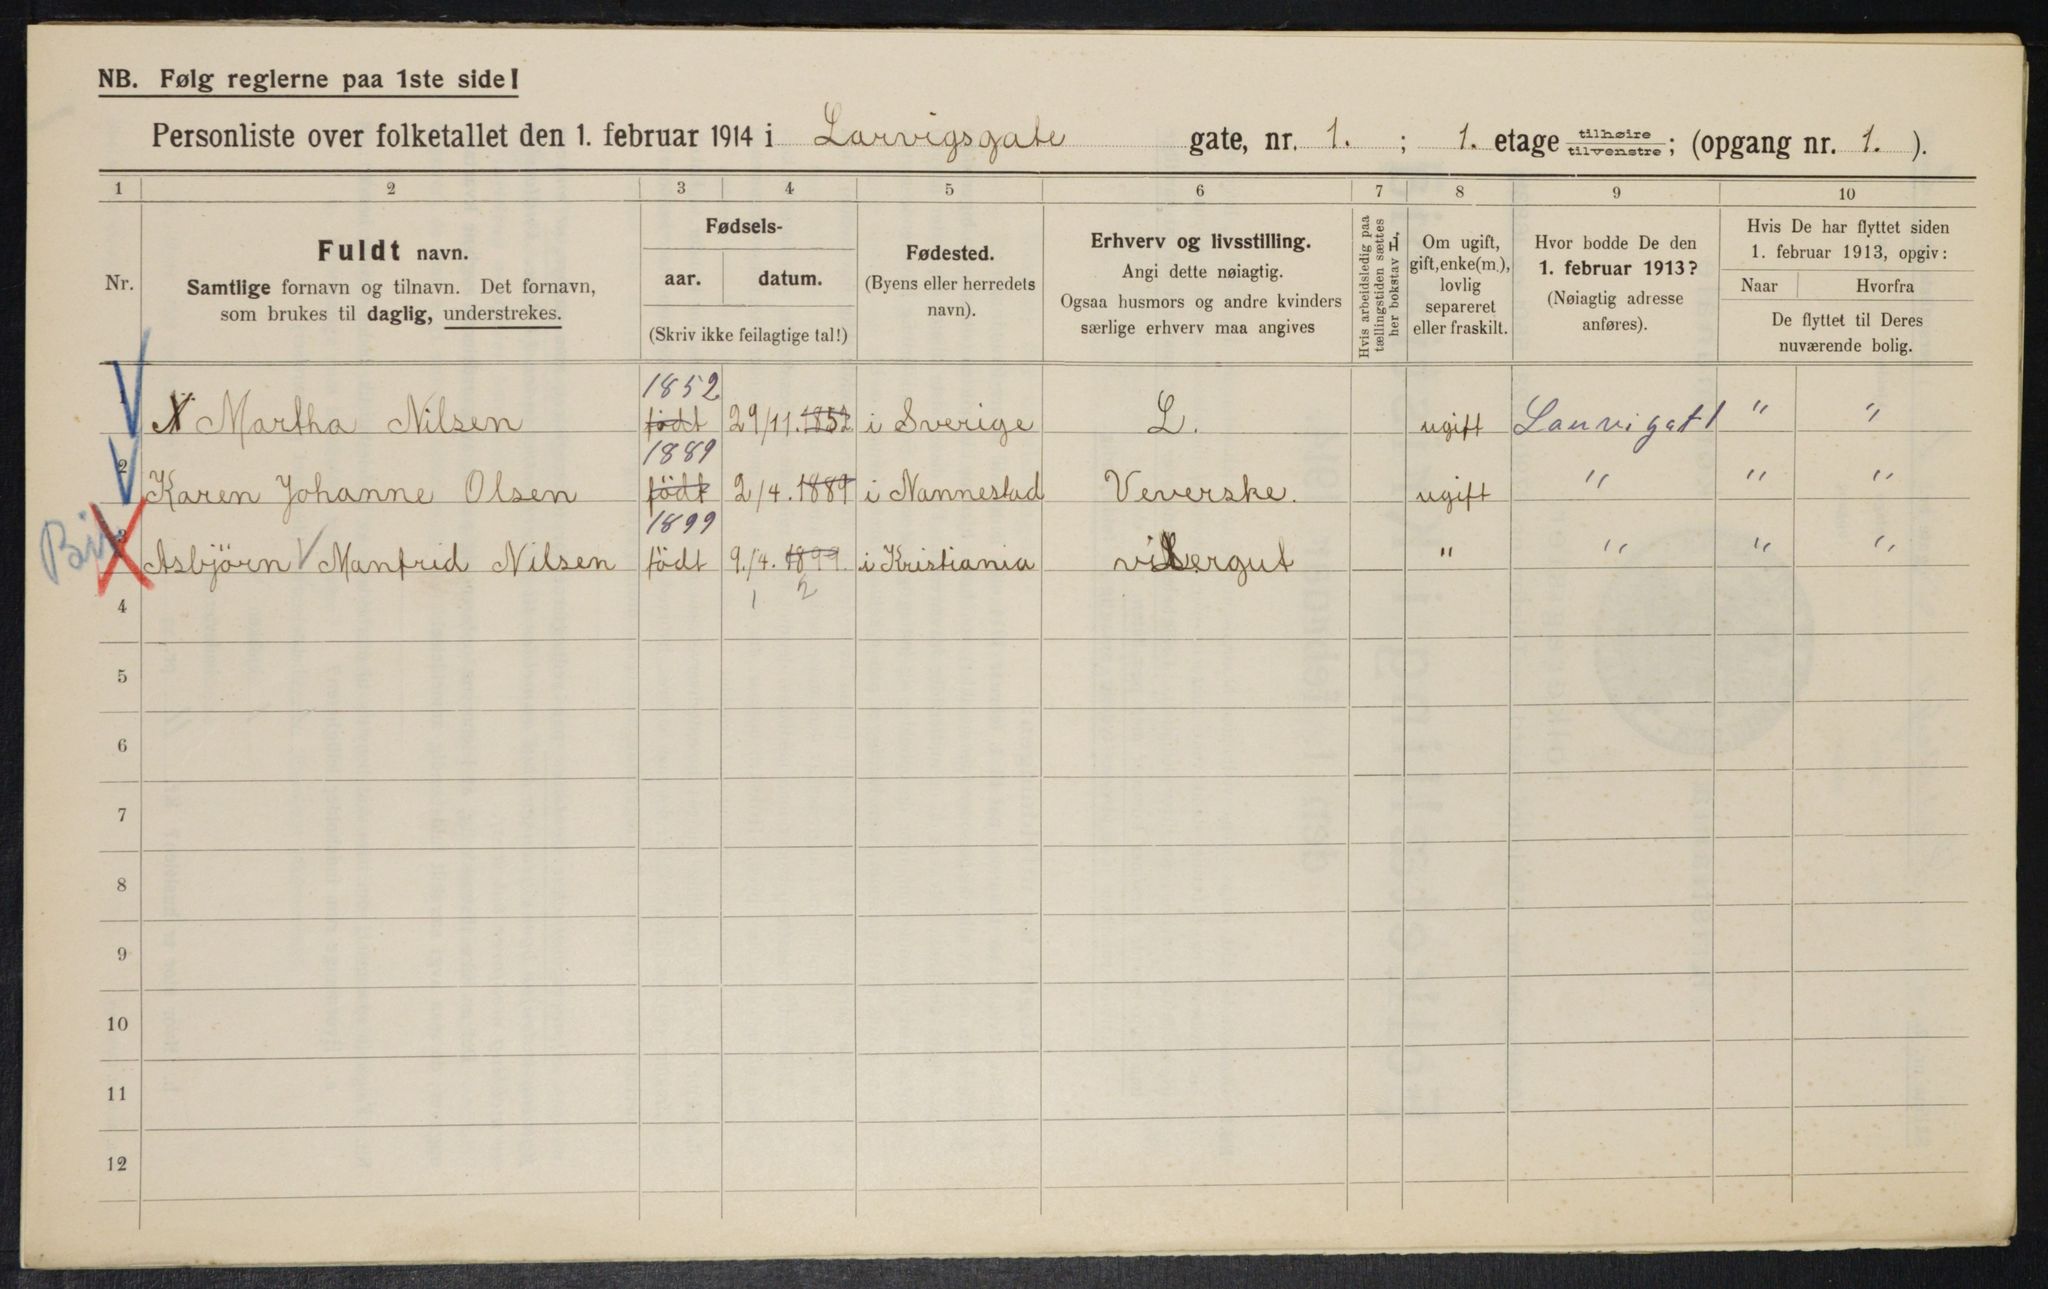 NB. Følg reglerne paa 1ste side!
Personliste over folketallet den 1. februar 1914 i Larvigsgate gate, nr. 1. ; 1. etage tilhøire tilvenstre ; (opgang nr. 1. ).
1 2 3 4 5 6 7 8 9 10
Nr.
Fuldt navn.
Samtlige fornavn og tilnavn. Det fornavn,
som brukes til daglig, understrekes.
Fødsels-
aar. datum.
(Skriv ikke feilagtige tal!)
Fødested.
(Byens eller herredets
navn).
Erhverv og livsstilling.
Angi dette nøiagtig.
Ogsaa husmors og andre kvinders
særlige erhverv maa angives
Hvis arbeidsledig paa
tællingstiden sættes
her bokstav L.
Om ugift,
gift, enke(m.),
lovlig
separeret
eller fraskilt.
Hvor bodde De den
1. februar 1913?
(Nøiagtig adresse
anføres).
Hvis De har flyttet siden
1. februar 1913, opgiv:
Naar Hvorfra
De flyttet til Deres
nuværende bolig.
Martha Nilsen 1852 født 29/11. 1852 i Sverige L. ugift Lauvigat 1 " "
2 Karen Johanne Olsen 1889 født 2/4. 1889 i Nannestad Veverske. ugift " " "
3 Asbjörn Manfrid Nilsen 1899 født 9./4. 1899 i Kristiania visergut " " " "
1 2
4
5
6
7
8
9
10
11
12